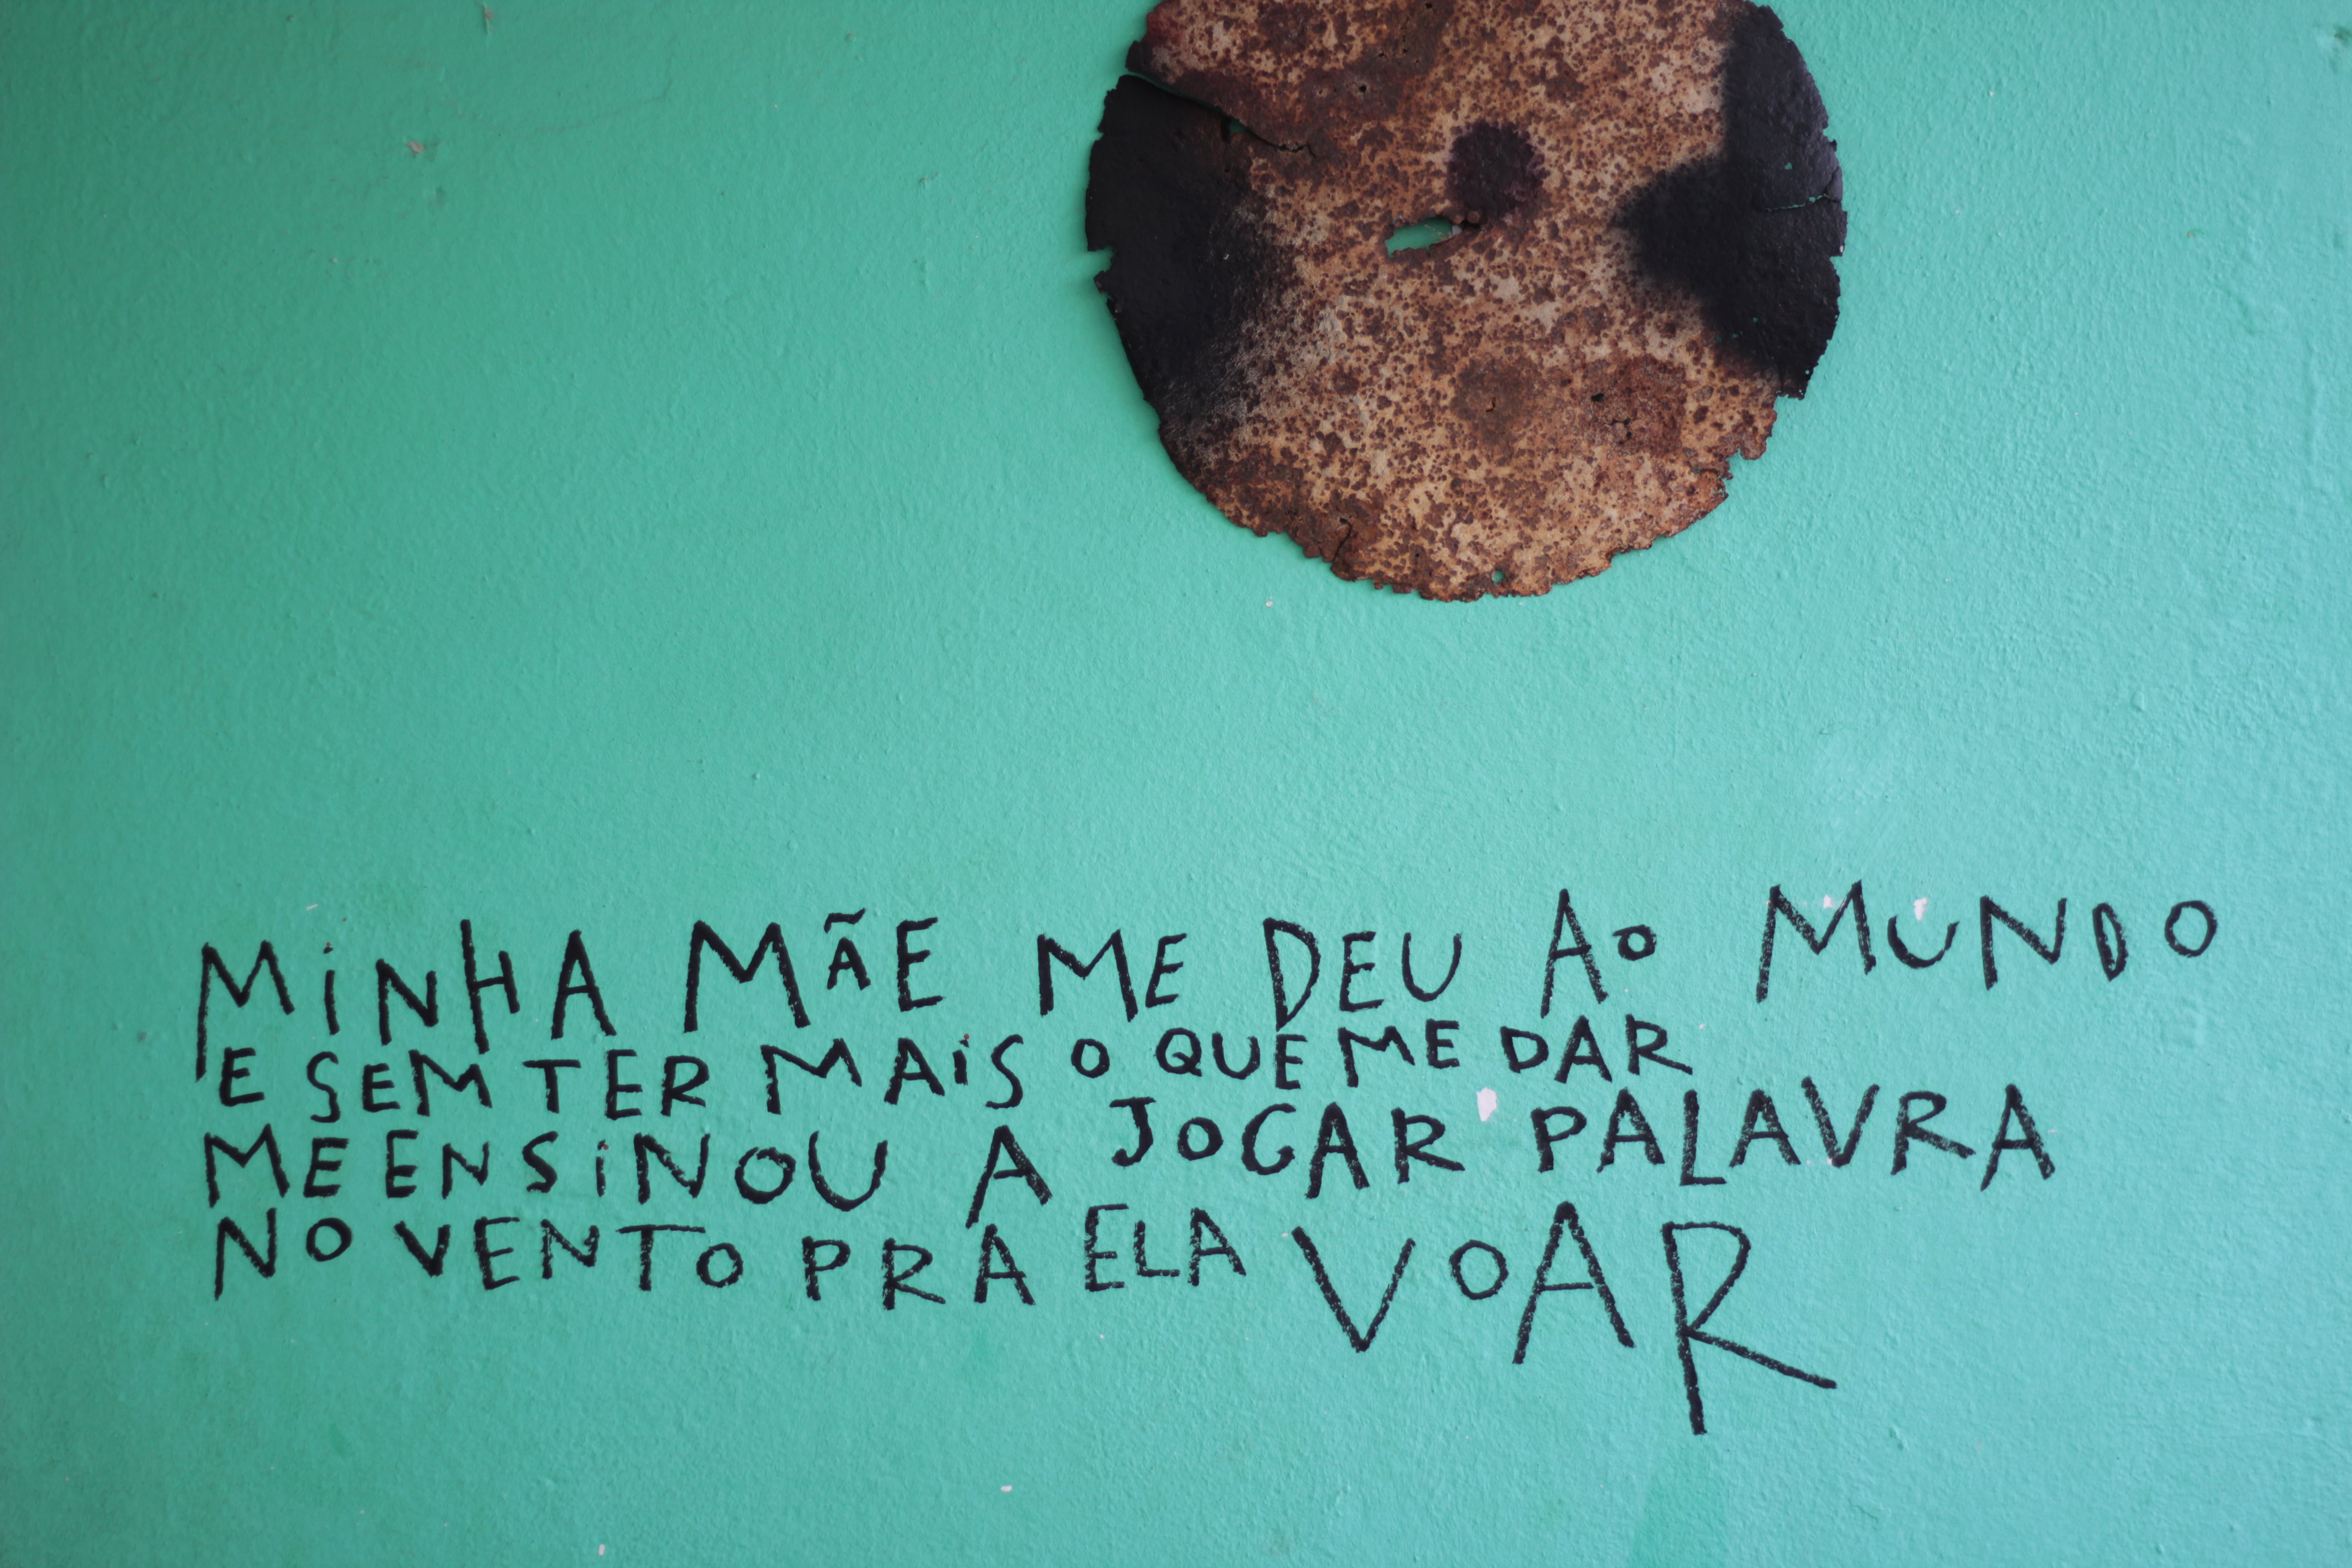 MiNHA MÃE ME DEU AO MUNDO
E SEM TER MAiS O QUE ME DAR
ME ENSiNOU A JOGAR PALAVRA
NO VENTO PRA ELA VOAR